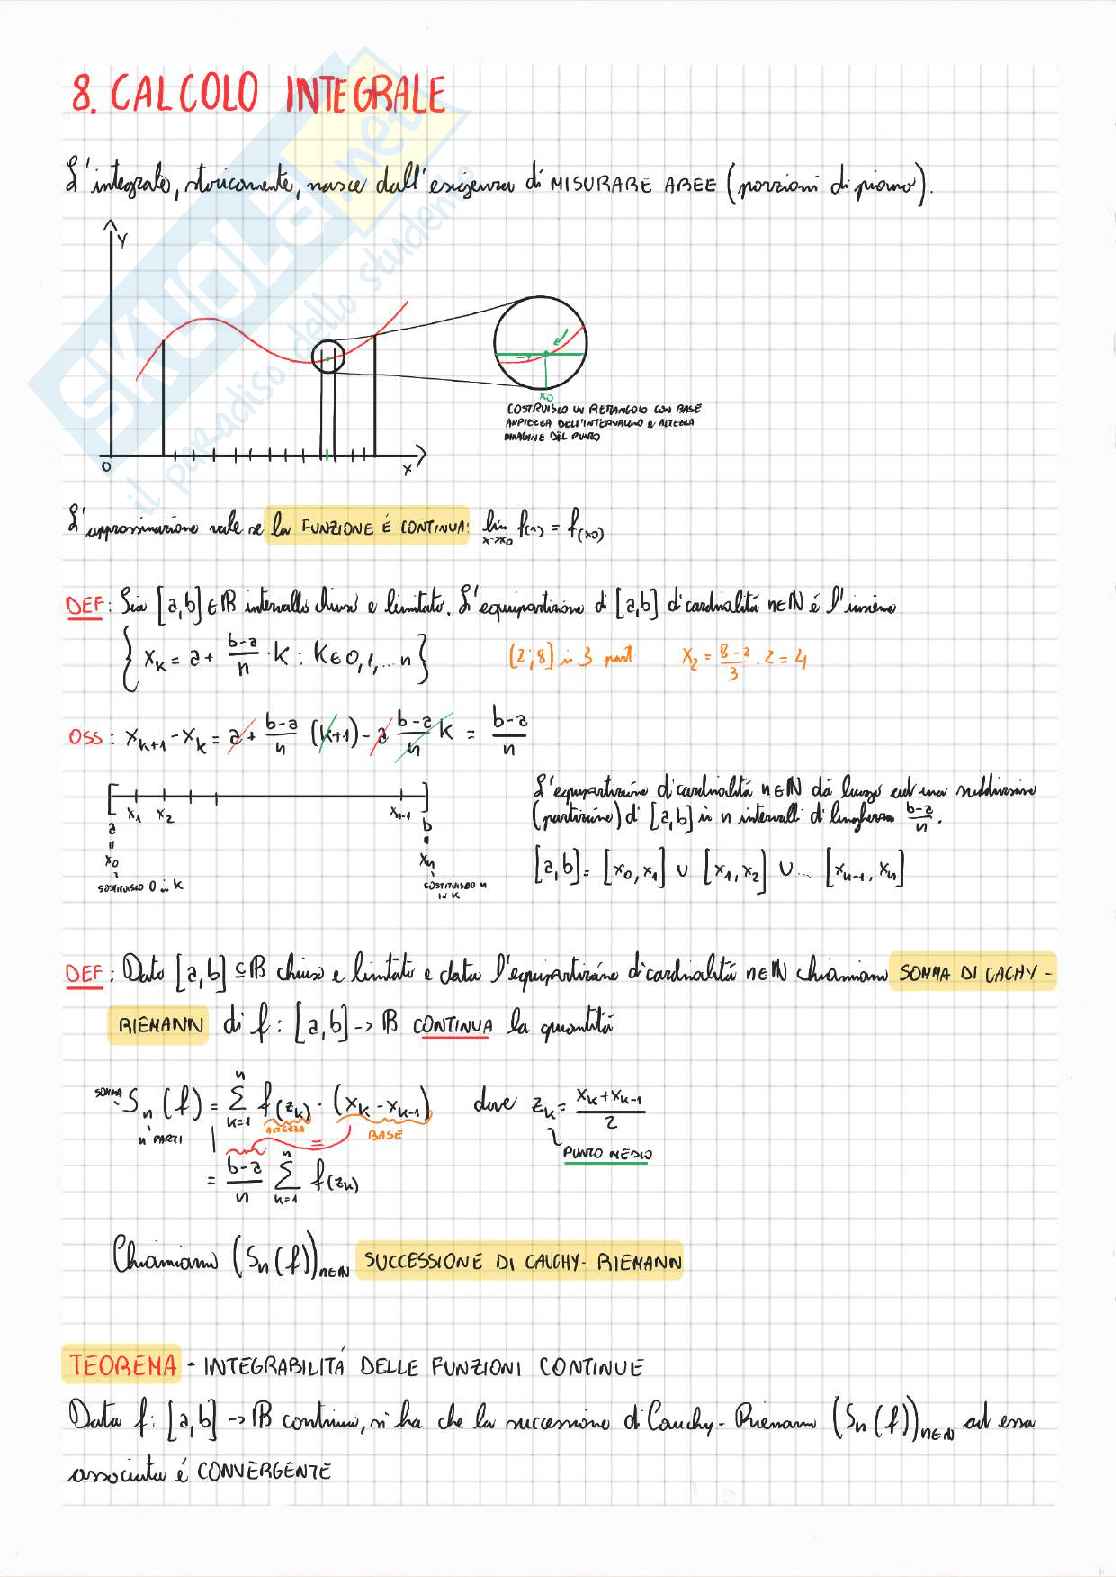 8. CALCOLO INTEGRALE
L'integrale, storicamente, nasce dall'esigenza di MISURARE AREE (porzioni di piano).
SKUOLA.net
il paradiso dello studente
Y
O
X
x0
COSTRUISCO UN RETTANGOLO CON BASE
AMPIEZZA DELL'INTERVALLO E ALTEZZA
IMMAGINE DEL PUNTO
L'approssimazione vale se la FUNZIONE É CONTINUA: lim x→x0 f(x) = f(x0)
DEF: Sia [a,b]∈ℝ intervallo chiuso e limitato. L'equipartizione di [a,b] di cardinalitá n∈ℕ é l'insieme
{ xk = a + b-a/n · k : k∈0,1,...n }
[2;8] in 3 parti x2 = 8-2/3 · 2 = 4
OSS: xk+1 - xk = a + b-a/n (k+1) - a b-a/n k = b-a/n
x1 x2 xn-1
a b
= =
x0 xn
SOSTITUISCO 0 in K
COSTITUISCO n
IN K
L'equipartizione di cardinalitá n∈ℕ dá luogo ad una suddivisione
(partizione) di [a,b] in n intervalli di lunghezza b-a/n.
[a,b] = [x0,x1] ∪ [x1,x2] ∪... [xn-1,xn]
DEF: Dato [a,b] ⊆ℝ chiuso e limitato e data l'equipartizione di cardinalitá n∈ℕ chiamiamo SOMMA DI CACHY-
RIEMANN di f: [a,b] → ℝ CONTINUA la quantitá
SOMMA Sn(f) = n Σ k=1 f(zk) · (xk - xk-1) dove zk = xk+xk-1/2
n PARTI ALTEZZA BASE PUNTO MEDIO
= b-a/n n Σ k=1 f(zk)
Chiamiamo (Sn(f))n∈ℕ SUCCESSIONE DI CAUCHY-RIEMANN
TEOREMA - INTEGRABILITÁ DELLE FUNZIONI CONTINUE
Data f: [a,b] → ℝ continua, si ha che la successione di Cauchy-Riemann (Sn(f))n∈ℕ ad essa
associata é CONVERGENTE